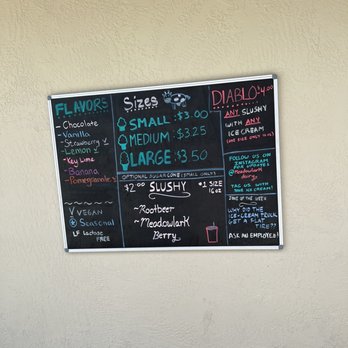 FLAVORS
- Chocolate
- Vanilla
- Strawberry V
- Lemon V
- Key Lime
- Banana
- Pomegranate V
V VEGAN
Seasonal
LF Lactose
FREE
Sizes
SMALL : $3.00
MEDIUM : $3.25
LARGE : $3.50
OPTIONAL SUGAR CONE (SMALL ONLY)
$2.00 SLUSHY
*1 SIZE
16oz
~Rootbeer
~Meadowlark
Berry
DIABLO $4.00
ANY SLUSHY
WITH ANY
ICE CREAM
(ONE SIZE ONLY 16oz)
FOLLOW US ON
INSTAGRAM
FOR UPDATES!
@Meadowlark
dairy
TAG US WITH
ICE CREAM!
JOKE OF THE WEEK
WHY DID THE
ICE-CREAM TRUCK
GET A FLAT
TIRE??
ASK AN EMPLOYEE!